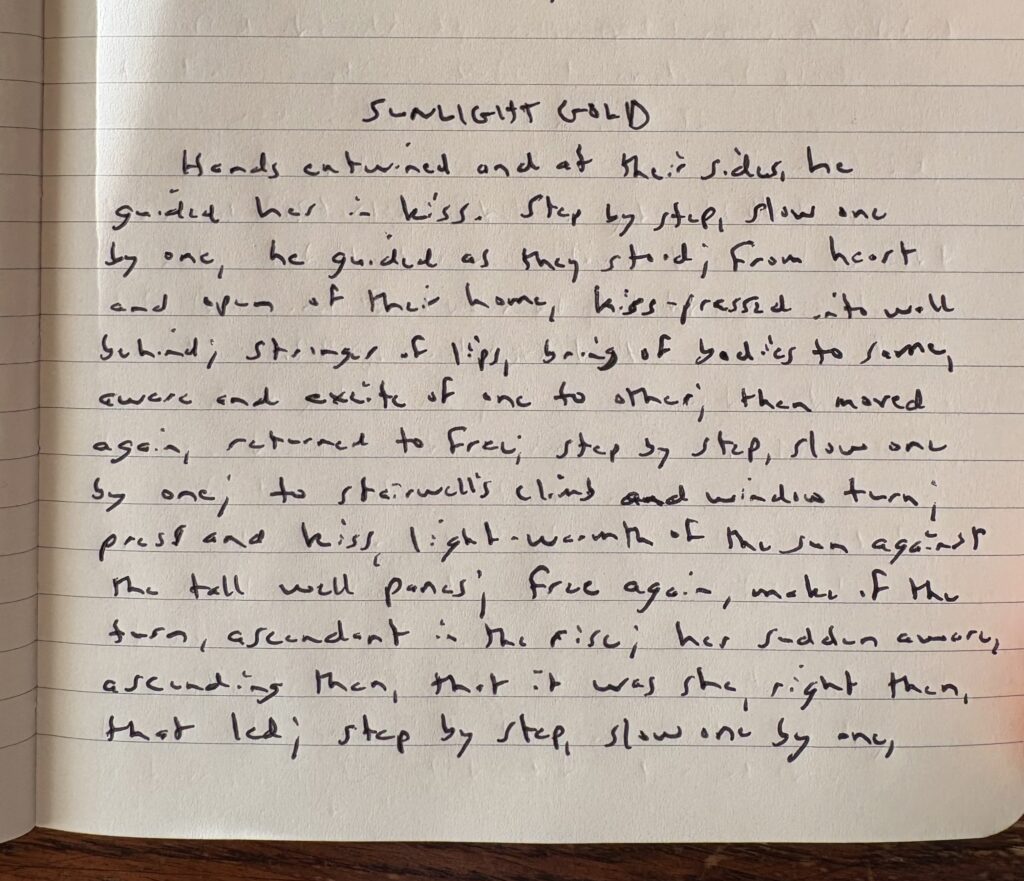 SUNLIGHT GOLD
Hands entwined and at their sides, he
guided her in kiss. Step by step, slow one
by one, he guided as they stood; from heart
and open of their home, kiss-pressed into wall
behind; stronger of lips, bring of bodies to same,
aware and excite of one to other; then moved
again, returned to free; step by step, slow one
by one; to stairwell's climb and window turn;
press and kiss, light-warmth of the sun against
the tall wall panes; free again, make of the
turn, ascendant in the rise; her sudden aware,
ascending then, that it was she, right then,
that led; step by step, slow one by one,